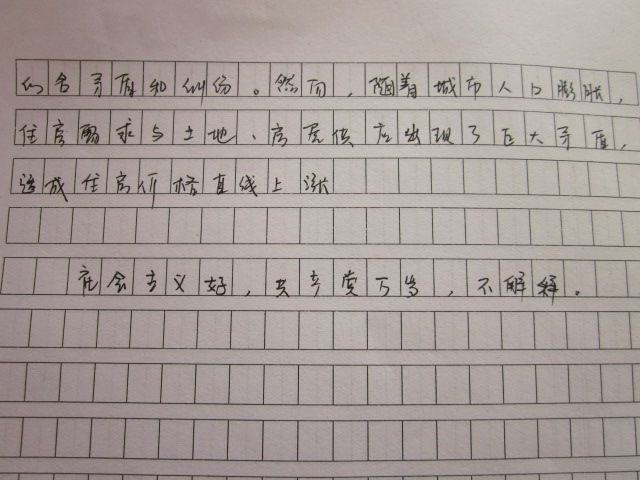 的各矛盾和纠纷。然而,随着城市人口膨胀,
住房需求与土地、房屋供应出现了巨大矛盾,
造成住房价格直线上涨
社会主义好,共产党万岁,不解释。